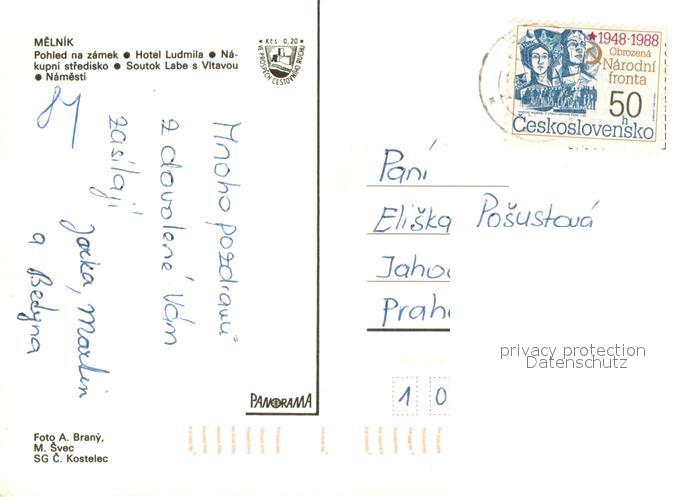 MĚLNÍK
Pohled na zámek ● Hotel Ludmila ● Ná-
kupní středisko ● Soutok Labe s Vltavou
● Náměstí
Kčs 0,20
VE PROSPĚCH CESTOVNÍHO RUCHU
1948-1988
Obrozená
Národní
fronta
50 h
Československo
Mnoho pozdravů
z dovolené Vám
zasílají
Jarka, Martin
a Bedyna
Paní
Eliška Pošustová
Jaho
Praha
1 0
privacy protection
Datenschutz
PANORAMA
Foto A. Braný,
M. Švec
SG Č. Kostelec